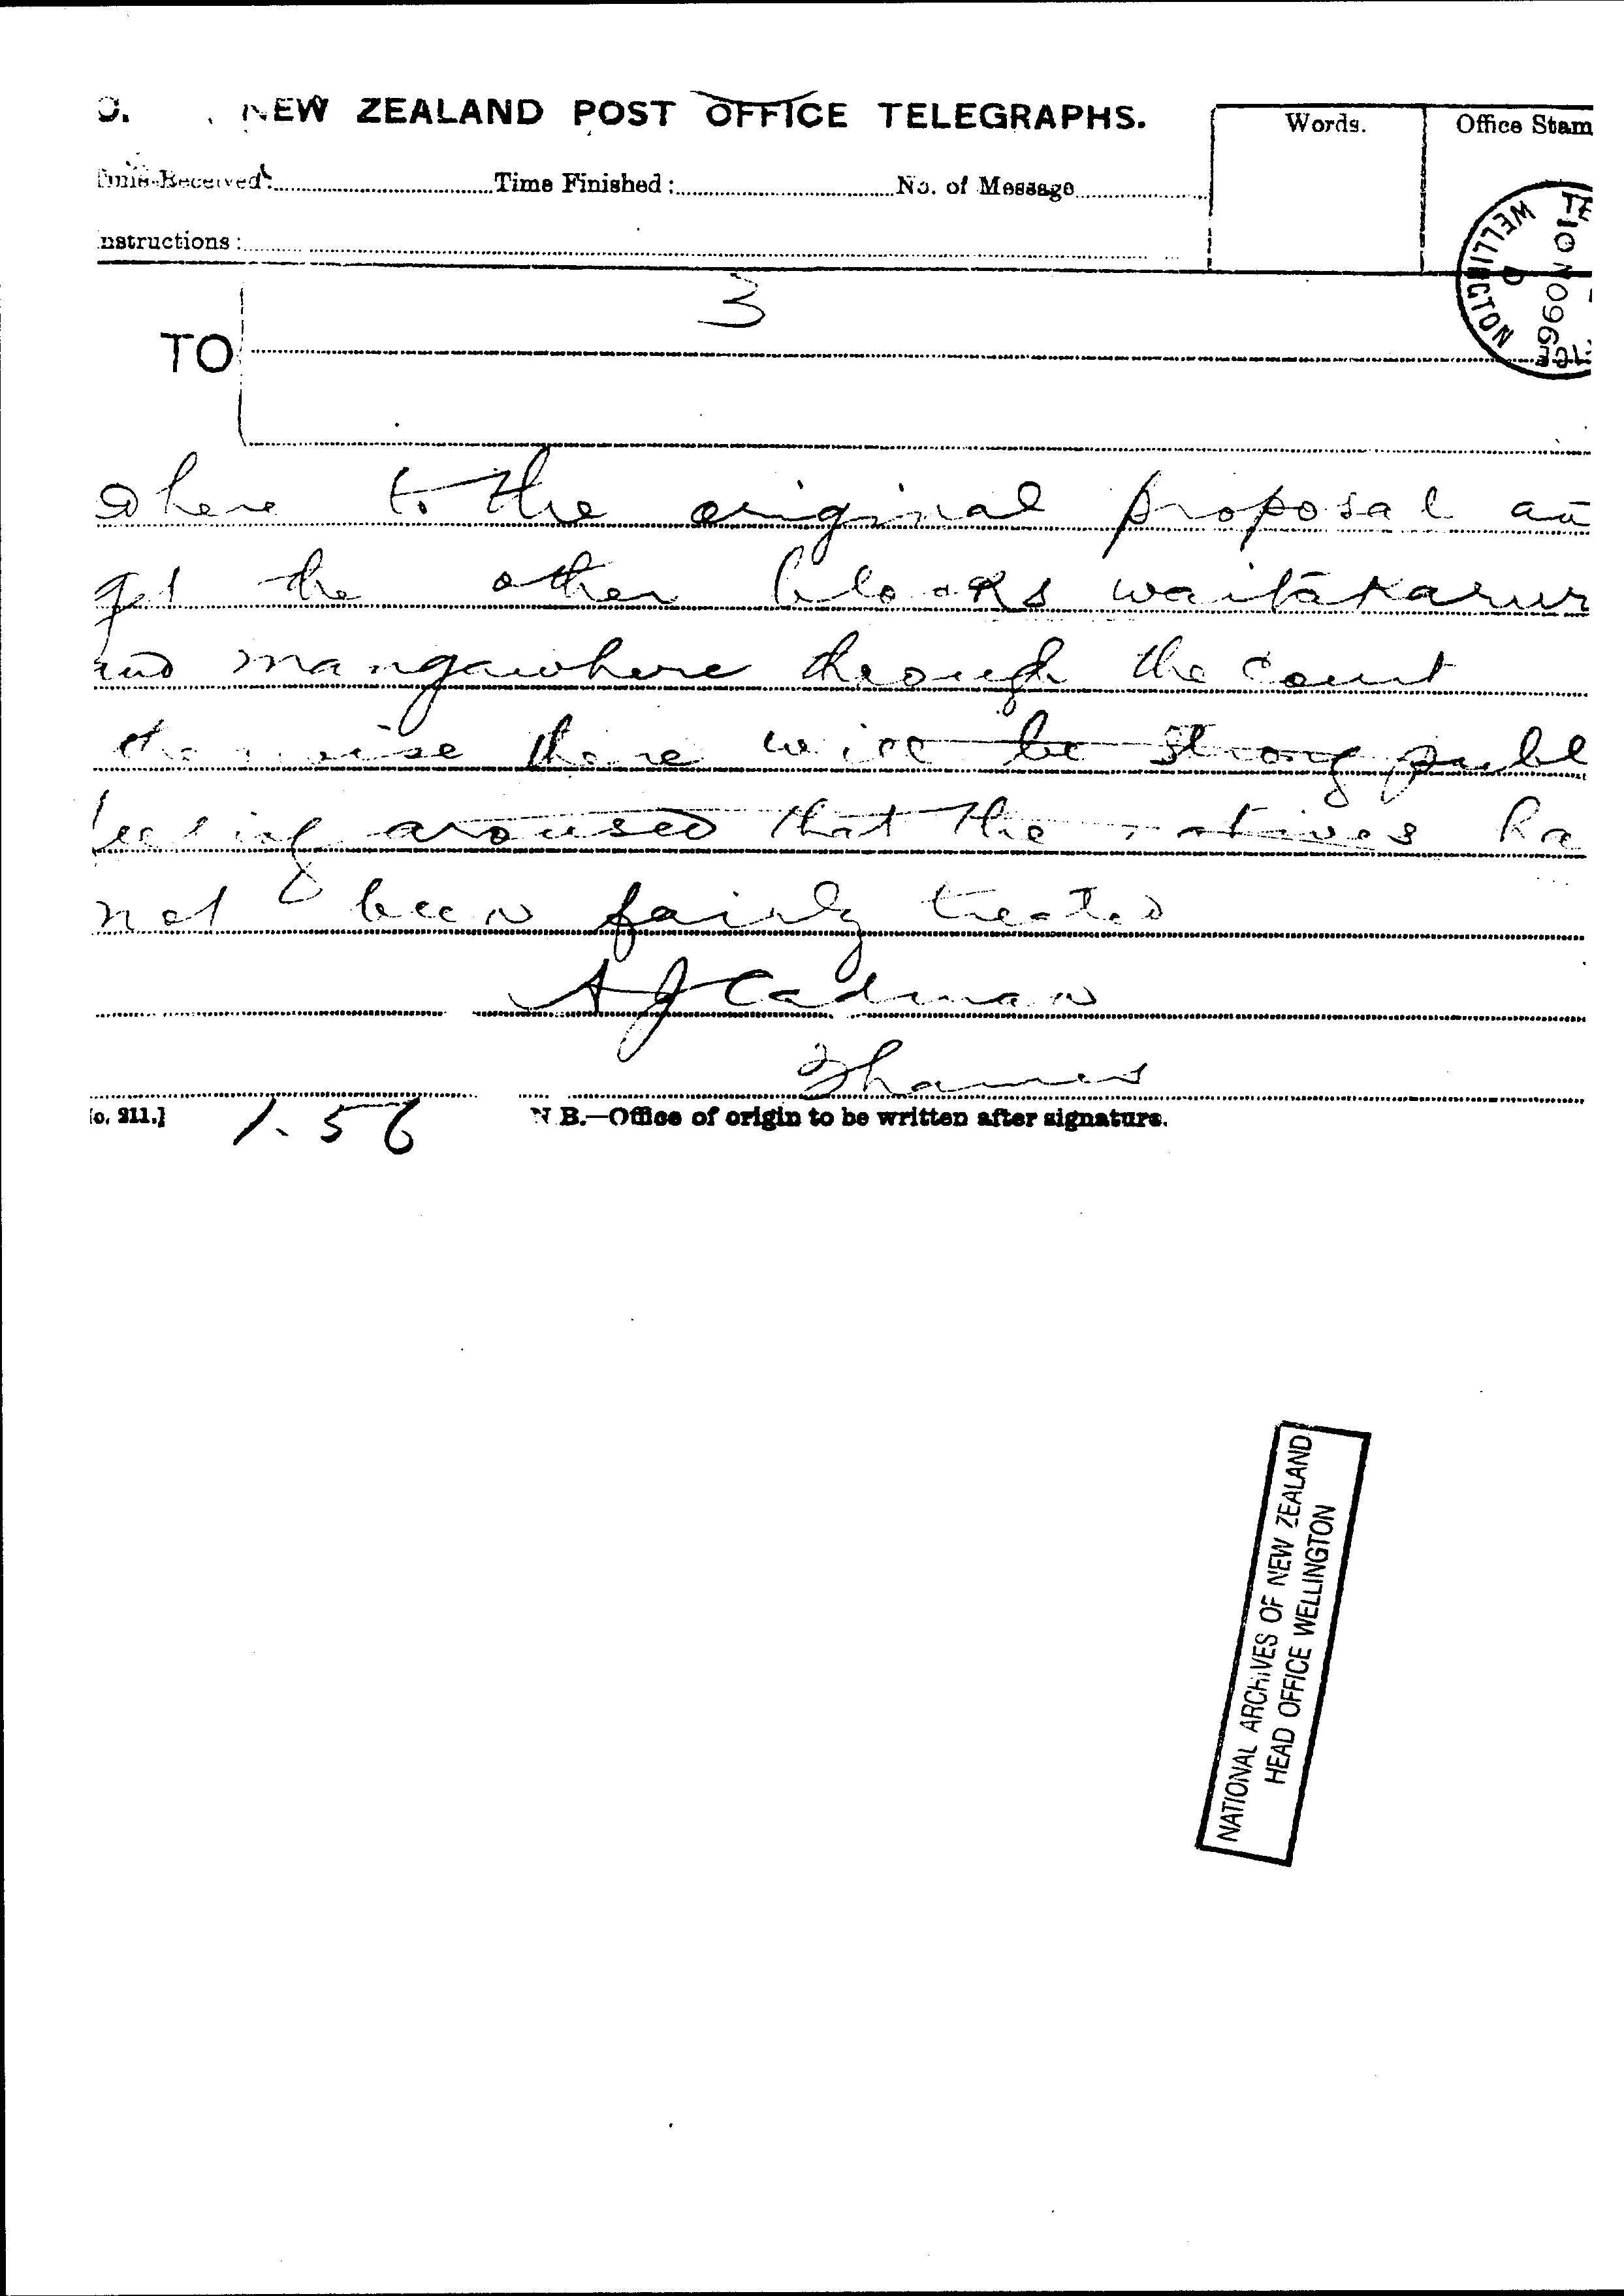 O. NEW ZEALAND POST OFFICE TELEGRAPHS.
Words.
Office Stam
Time Received: Time Finished: No. of Message
nstructions:
WELLINGTON
10 NO 99
3
TO
dhere to the original proposal an
get the other blocks waitakarur
and mangawhere through the court
therwise there will be strong publ
feeling aroused that the natives ha
not been fairly treated
A J Cadman
Thames
[o. 211.] 1.56 N.B.—Office of origin to be written after signature.
NATIONAL ARCHIVES OF NEW ZEALAND
HEAD OFFICE WELLINGTON